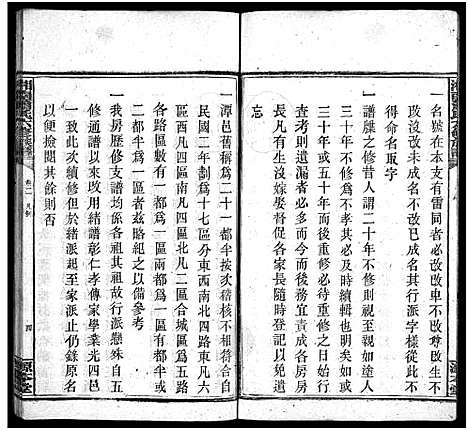 一名號在本支有雷同者必改改卑不改尊改生不
改死改未成名不改已成名其行派字樣從此不
得命名取字
一譜牒之修昔人謂二十年不修則視至親若路人
三十年不修以為不孝其必及時續輯也明矣如或
三十年或五十年而後重修必待重修之日始行
查考則多舛而多遺後之承先務宜責成各房房
長凡有生沒嫁娶督促各家長隨時登記以備遺
忘
一潭邑舊稱為二十一都半按次稽核不相符合自
民國二年劃為十七區分東西南北四路東凡六
區西凡四區南凡五區北凡二區合城區為五路
各路區數有一都為一區兩都為一區有都半或
二都半為一區者茲略紀之以備參考
一我房歷修支譜均遵各祖其祖故行派懸殊自五
修通譜以來改用緒彰仁孝傳家學業光四邑
均已如此次續修但於緒派起之家派止仍錄原名
以便撿閱其餘則否
卷一
凡例
四
源本堂